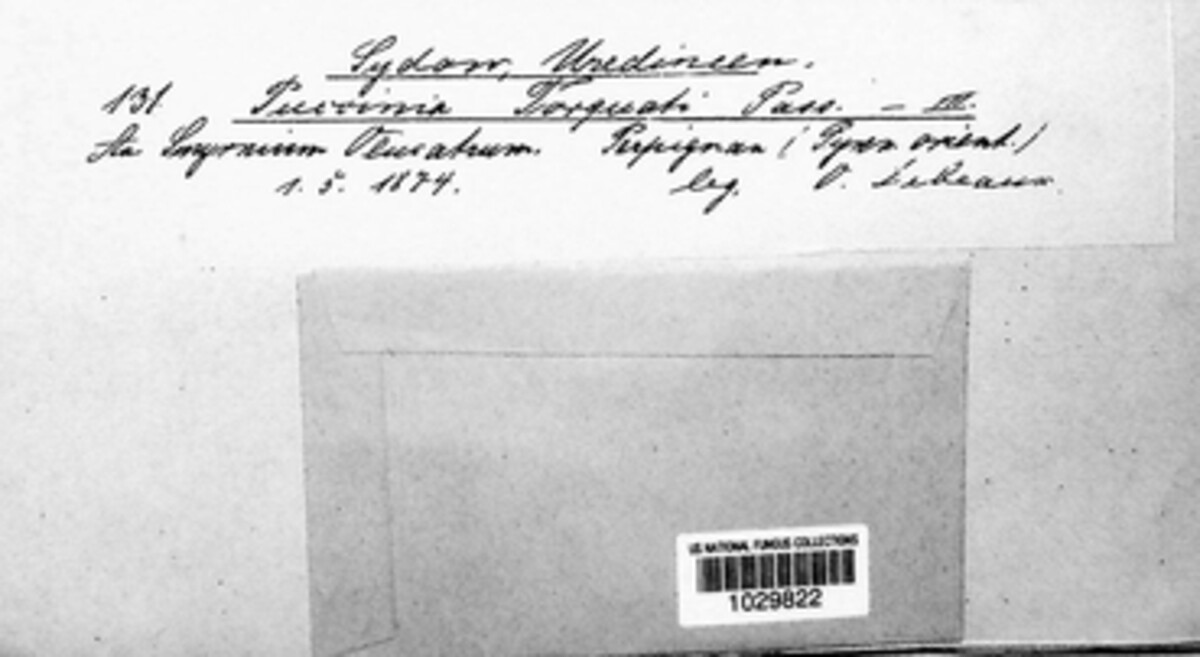 Sydow, Uredineen.
131 Puccinia Torquati Pass. – III.
Sta Smyrnium Olusatrum. Perpignan (Pyren. orient.)
1. 5. 1874. leg. O. Debeaux.
US NATIONAL FUNGUS COLLECTIONS
1029822